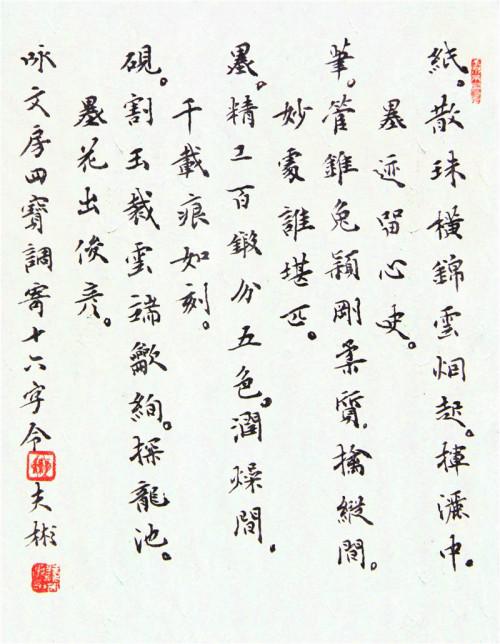 紙。散珠橫錦雲烟起。揮灑中。
墨迹留心史。
筆。管錐兔穎剛柔質。擒縱間。
妙處誰堪匹。
墨。精工百鍛分五色。潤燥間。
千載痕如刻。
硯。割玉裁雲端歙絢。探龍池。
墨花出俊彦。
咏文房四寶調寄十六字令 夫彬